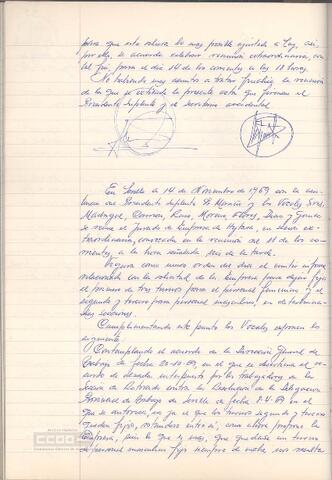 para que esta saliera lo mas posible ajustada a Ley, así,
por ello, se acuerda celebrar reunión extraordinaria, con
tal fin, para el día 14 de los corrientes a las 18 horas.
No habiendo mas asuntos a tratar finaliza la reunión
de la que se extiende la presente acta que firman el
Presidente Suplente y el Secretario accidental
En Sevilla a 14 de Noviembre de 1969 con la
del Presidente Suplente Sr. y los Vocales Sres.
Madrigal, Ruiz, Moreno Flores, Diaz y
se reune el Jurado de Empresa de en sesión ex-
traordinaria, convocada en la reunión del 11 de los co-
rrientes, a la hora señalada seis de la tarde.
Figura como unico orden del dia el emitir informe
relacionado con la solicitud de la Empresa para dejar fijo
el primero de tres turnos para el personal femenino y el
segundo y tercero para personal masculino, en determina-
das secciones.
Cumplimentando este punto los Vocales exponen lo
siguiente:
Contemplando el acuerdo de la Dirección General de
Trabajo de fecha 20-10-69, en el que se desestima el re-
curso de alzada interpuesto por los trabajadores de la
Sección de contra la Resolución de la Delegación
Provincial de Trabajo de Sevilla de fecha 8-5-69 en el
que se autoriza, en el que los turnos segundo y tercero
queden fijos, rotandose entre si, como ahora propone la
Empresa, para lo que es mas, que quedase un turno
de personal masculino fijo siempre de noche nos resulta